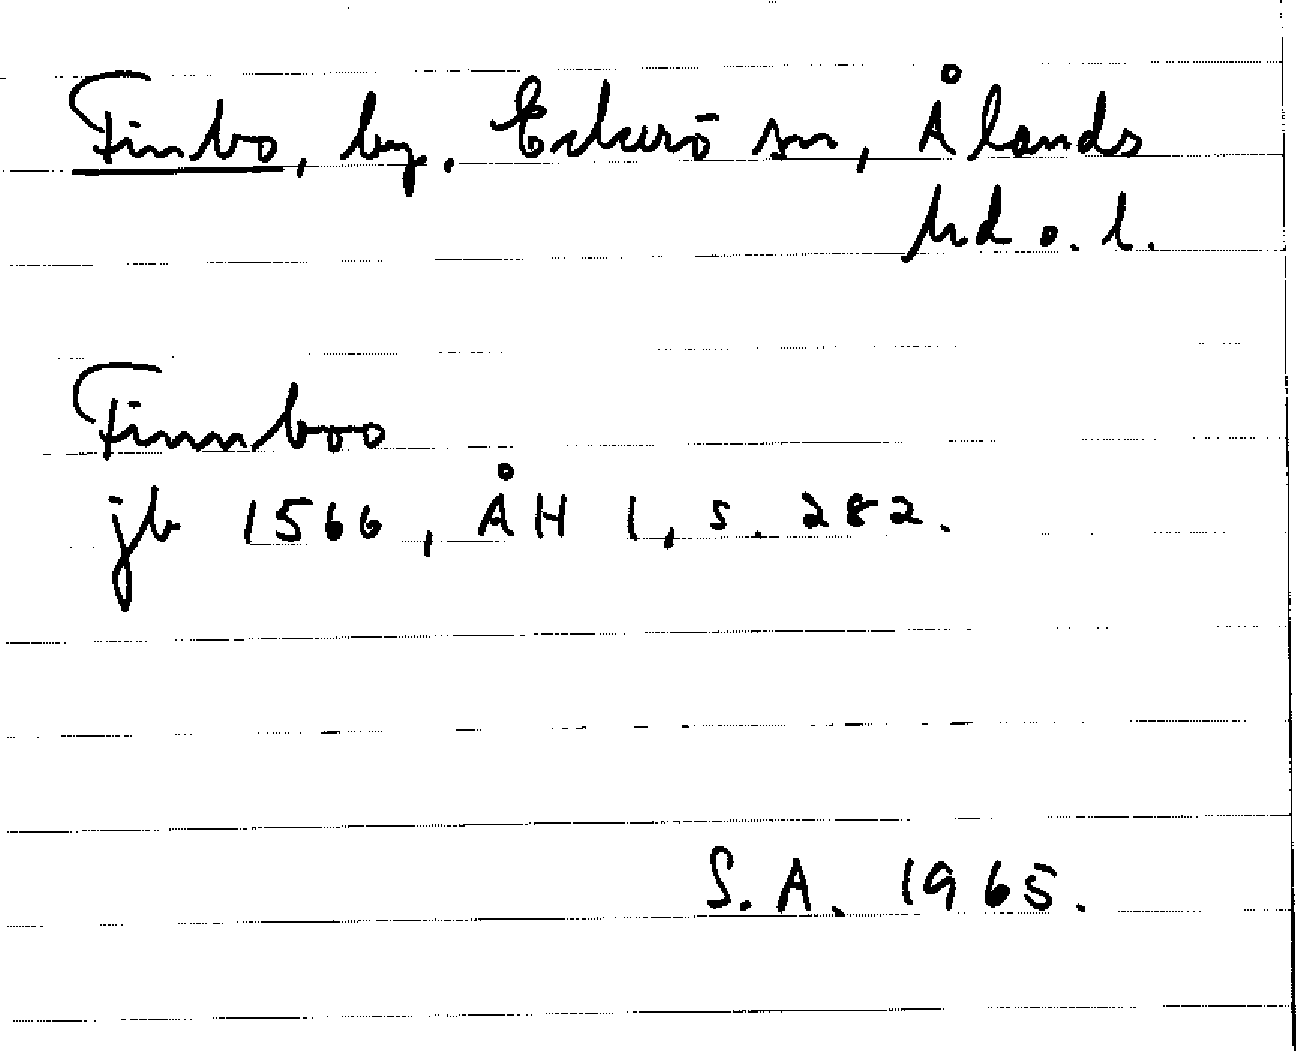 Finbo, by. Eckerö sn, Ålands
hd o. l.
Finnboo
jb 1566, ÅH 1, s. 282.
S.A. 1965.